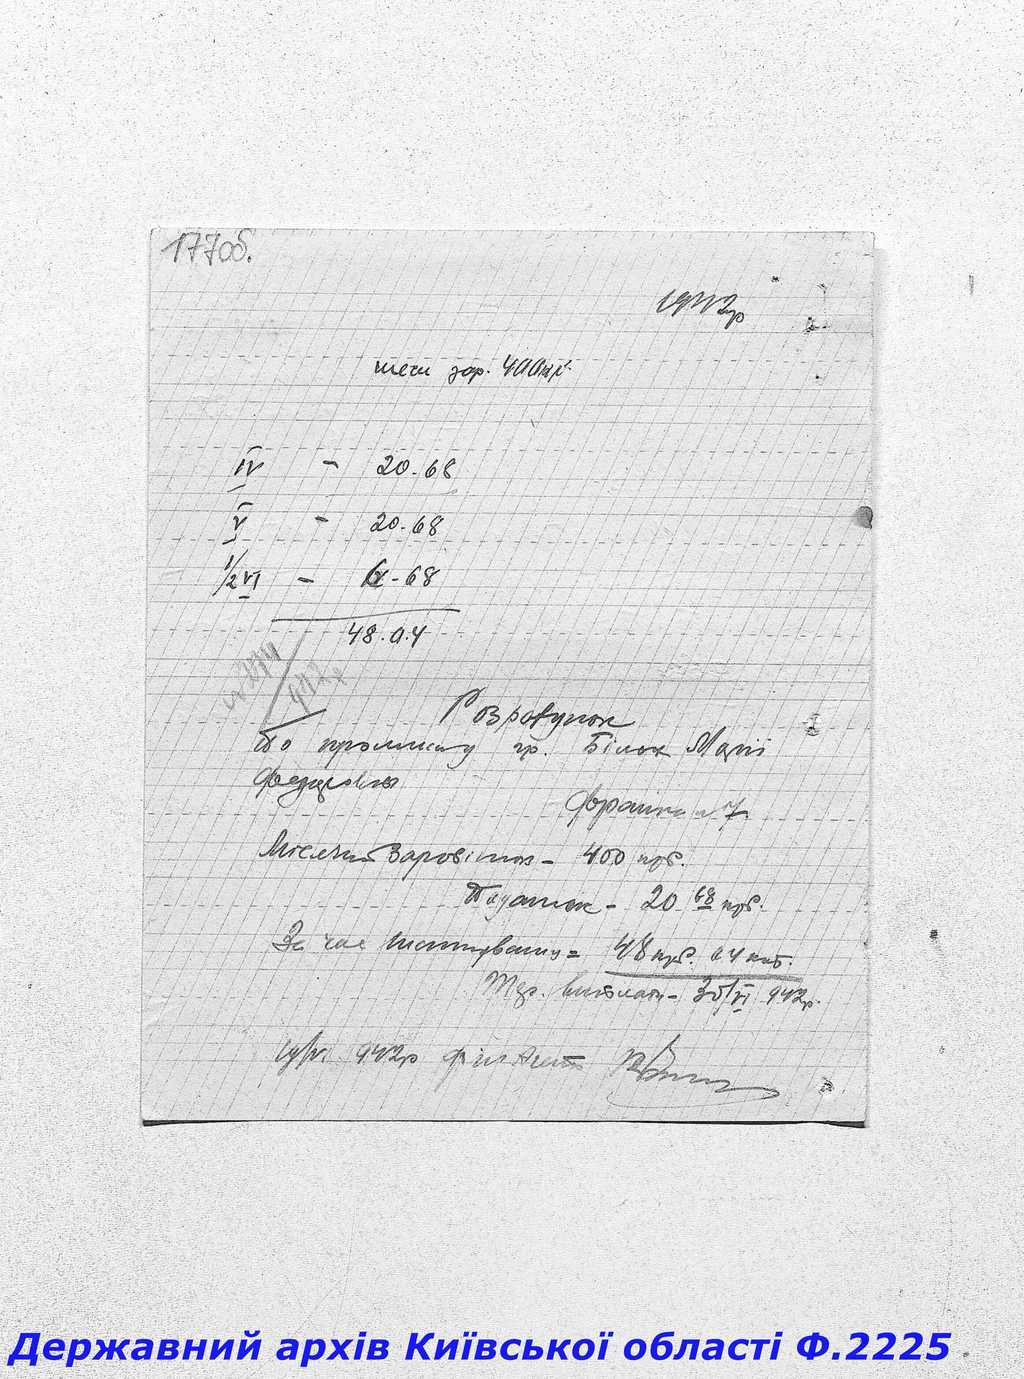 177об.
1942р
зар. 400кр.
IV - 20-68
V - 20-68
1/2 VI - 6-68
48.04
942р
Розрахунок
По промислу гр. Білок Марії
Федоровни
Франка №7.
Місячний Заробіток - 400 крб.
Податок - 20 68 крб.
За час = 48 крб. 04 коп.
- 30/VI 942р.
942р Фін Агент
Державний архів Київської області Ф.2225